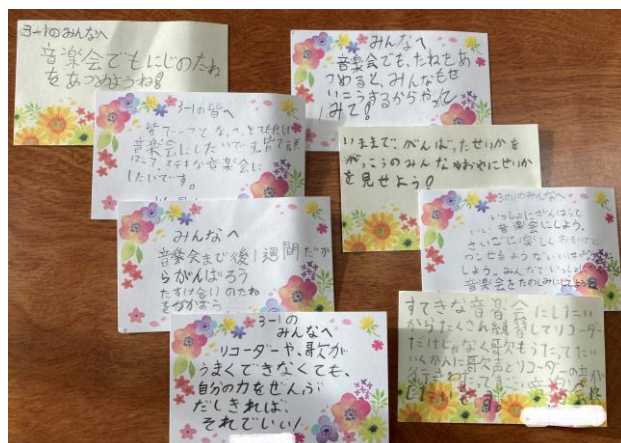 3-1のみんなへ
音楽会でもにじのたね
をあつめようね!
みんなへ
音楽会でも、たねをあ
つめると、みんなもせ
いこうするからやって
みて!
3-1の皆へ
皆で一つとなって
音楽会にしたいです。皆で頑
ばって、ステキな音楽会に
したいです。
いままで、がんばったせいかを
がっこうのみんなやおやにせいか
を見せよう!
みんなへ
音楽会まで後1週間だか
らがんばろう
たすけ合いのたね
をつかおう
3の1のみんなへ
いっしょにがんばって
いい音楽会にしよう。
さいごに楽しく
のこせるような
しよう。みんなでいっしょに
音楽会をたのしみにしてようね
3-1の
みんなへ
リコーダーや、歌が
うまくできなくても、
自分の力をぜんぶ
だしきれば、
それでいい!
すてきな音楽会にしたい
からたくさん練習してリコーダー
だけじゃなく歌もうたってたい
いくかんに歌声とリコーダーの音が